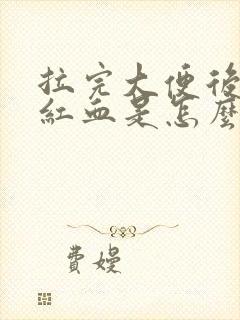 拉完大便後
紅血是怎麼
費嫚